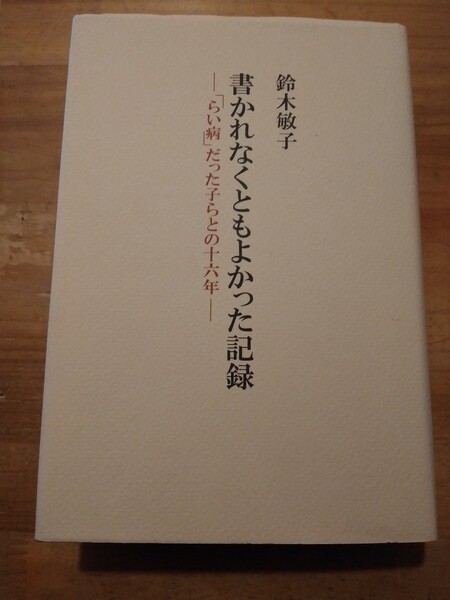 鈴木敏子
書かれなくともよかった記録
―「らい病」だった子らとの十六年―